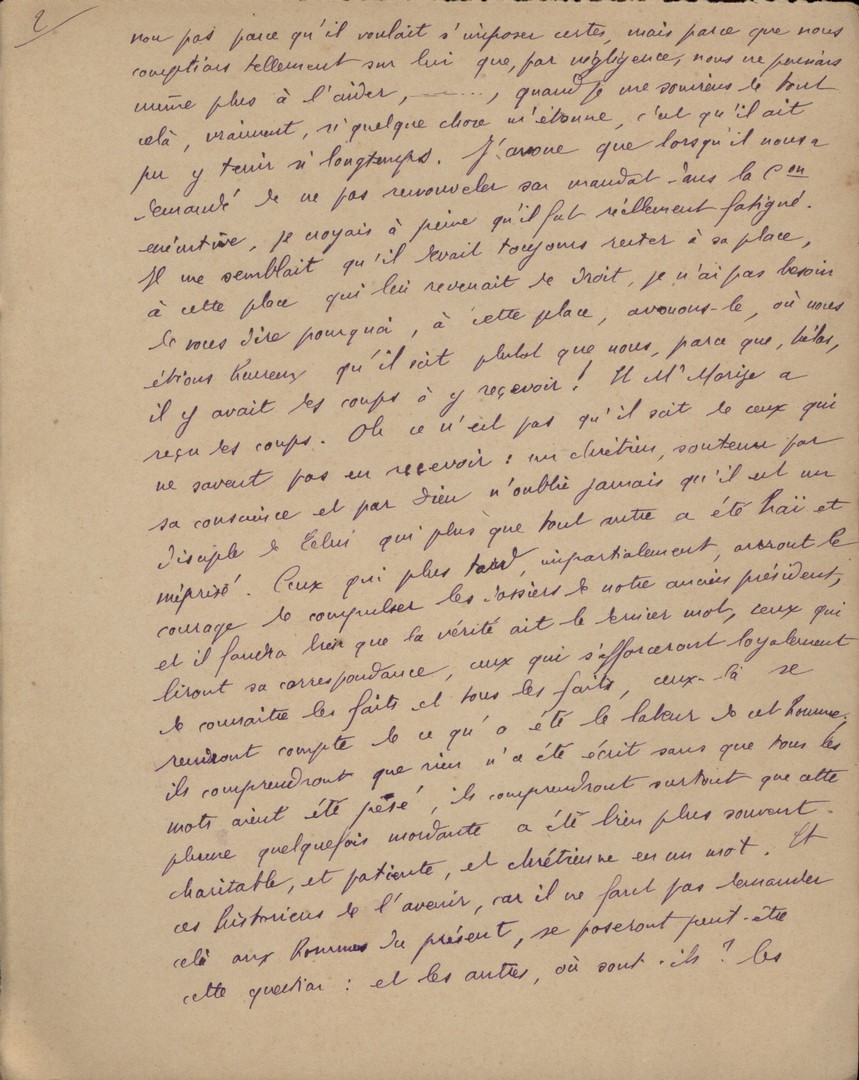 2
non pas parce qu'il voulait s'imposer certes, mais parce que nous
comptions tellement sur lui que, par négligence, nous ne pensions
même plus à l'aider, ......, quand je me souviens de tout
celà, vraiment, si quelque chose m'étonne, c'est qu'il ait
pu y tenir si longtemps. J'avoue que lorsqu'il nous a
demandé de ne pas renouveler son mandat dans la Con
exécutive, je croyais à peine qu'il fut réellement fatigué.
Il me semblait qu'il devait toujours rester à sa place,
à cette place qui lui revenait de droit, je n'ai pas besoin
de vous dire pourquoi, à cette place, avouons-le, où nous
étions heureux qu'il soit plutot que nous, parce que, hélas,
il y avait des coups à y reçevoir! Et Mr Morize a
reçu des coups. Oh ce n'est pas qu'il soit de ceux qui
ne savent pas en reçevoir : un chrétien, soutenu par
sa conscience et par Dieu n'oublie jamais qu'il est un
disciple de Celui qui plus que tout autre a été haï et
méprisé. Ceux qui plus tard, impartialement, auront le
courage de compulser les dossiers de notre ancien président,
et il faudra bien que la vérité ait le dernier mot, ceux qui
liront sa correspondance, ceux qui s'efforceront loyalement
de connaitre les faits et tous les faits, ceux-là se
rendront compte de ce qu'a été le labeur de cet homme,
ils comprendront que rien n'a été écrit sans que tous les
mots aient été pesé, ils comprendront surtout que cette
plume quelquefois mordante a été bien plus souvent
charitable, et patiente, et chrétienne en un mot. Et
ces historiens de l'avenir, car il ne faut pas demander
celà aux hommes du présent, se poseront peut-être
cette question : et les autres, où sont-ils? les